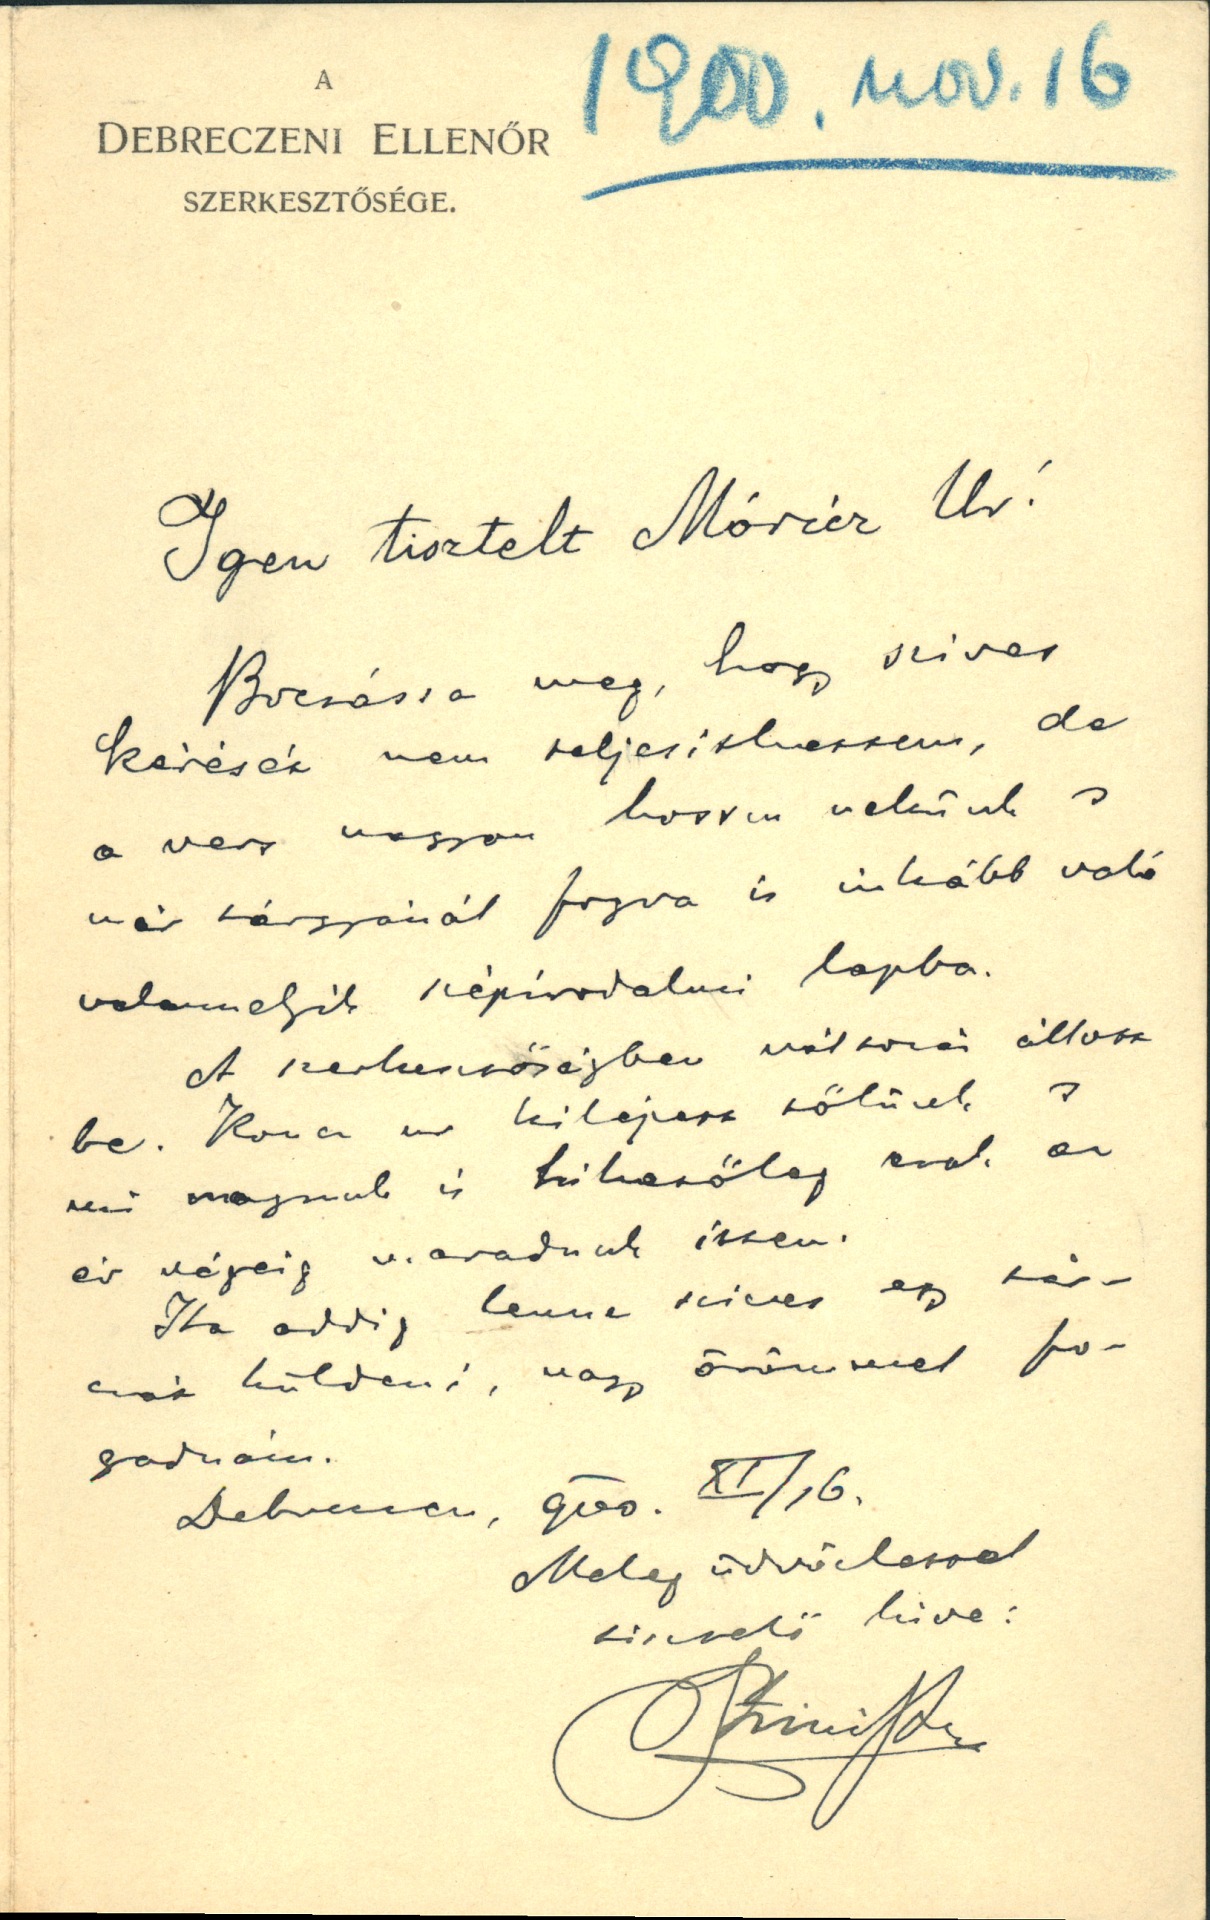 1900. nov. 16
A
DEBRECZENI ELLENŐR
SZERKESZTŐSÉGE.
Igen tisztelt Móricz Ur!
Bocsássa meg, hogy szives
kérését nem teljesithessem, de
a vers nagyon hosszu nekünk s
már tárgyánál fogva is inkább való
valamelyik szépirodalmi lapba.
A szerkesztőségben változás állott
be. Koncz ur kilépett tőlünk s
mi magunk is csak az
év végéig maradunk itten.
Ha addig lenne szives egy tár-
czát küldeni, nagy örömmel fo-
gadnám.
Debreczen, 900. XI/16.
Meleg üdvözlettel
tisztelő hive: